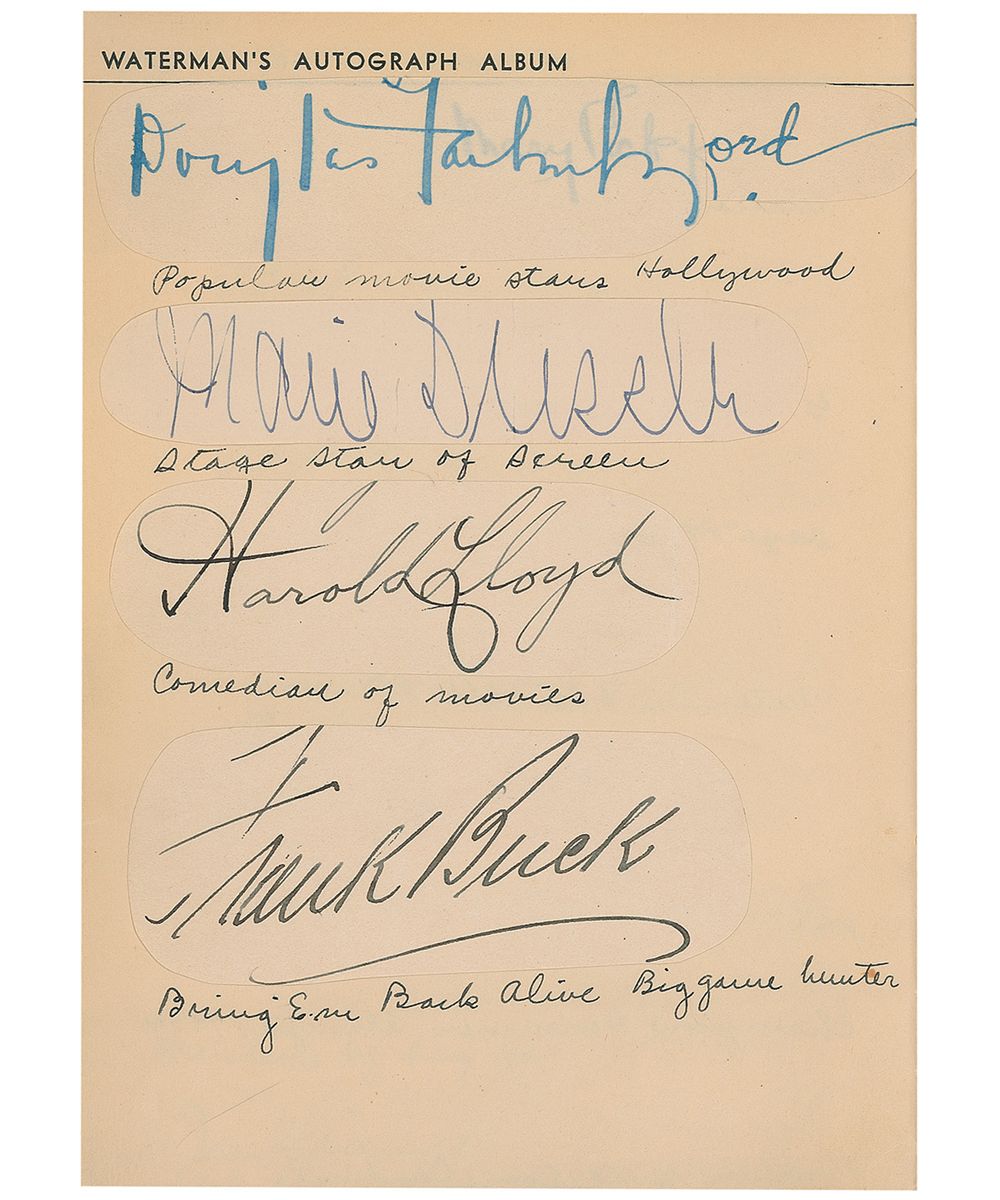 WATERMAN'S AUTOGRAPH ALBUM
Douglas Fairbanks ford
Popular movie stars Hollywood
Marie Dressler
Stage Star of Screen
Harold Lloyd
Comedian of movies
Frank Buck
Bring E.m Back Alive Big game hunter